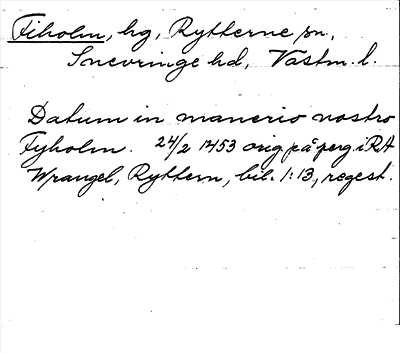 Fiholm, hg, Rytterne sn,
Snevringe hd, Västm. l.
Datum in manerio nostro
Fyholm. 24/2 1453 orig. på perg. i RA
Wrangel, Ryttern, bil. 1:13, regest.